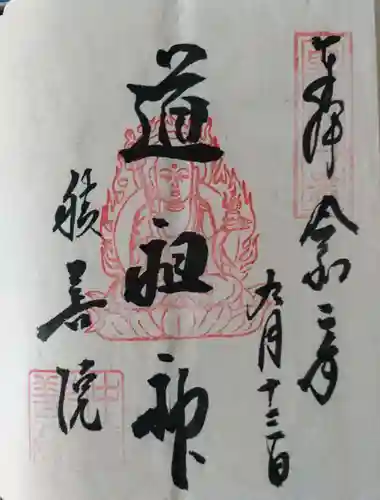 奉拝 令和二年
九月十三日
道祖神
勝善院